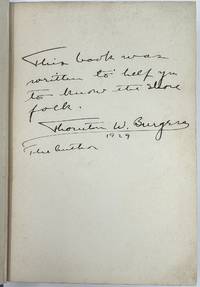 This book was
written to help you
to know the shore
folk.
Thornton W. Burgess
1929
The Author